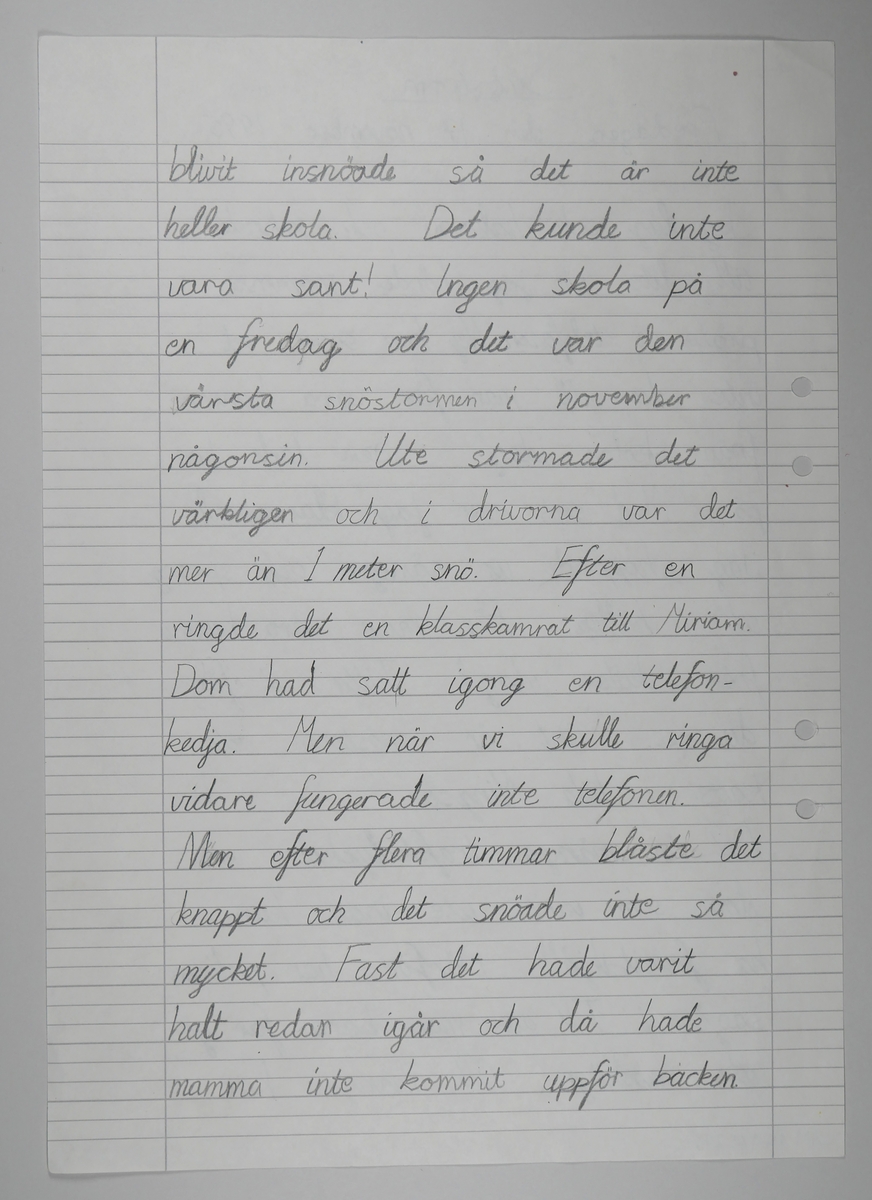 blivit insnöade så det är inte
heller skola. Det kunde inte
vara sant! Ingen skola på
en fredag och det var den
värsta snöstormen i november
någonsin. Ute stormade det
värkligen och i drivorna var det
mer än 1 meter snö. Efter en
ringde det en klasskamrat till Miriam.
Dom had satt igong en telefon-
kedja. Men när vi skulle ringa
vidare fungerade inte telefonen.
Men efter flera timmar blåste det
knappt och det snöade inte så
mycket. Fast det hade varit
halt redan igår och då hade
mamma inte kommit uppför backen.